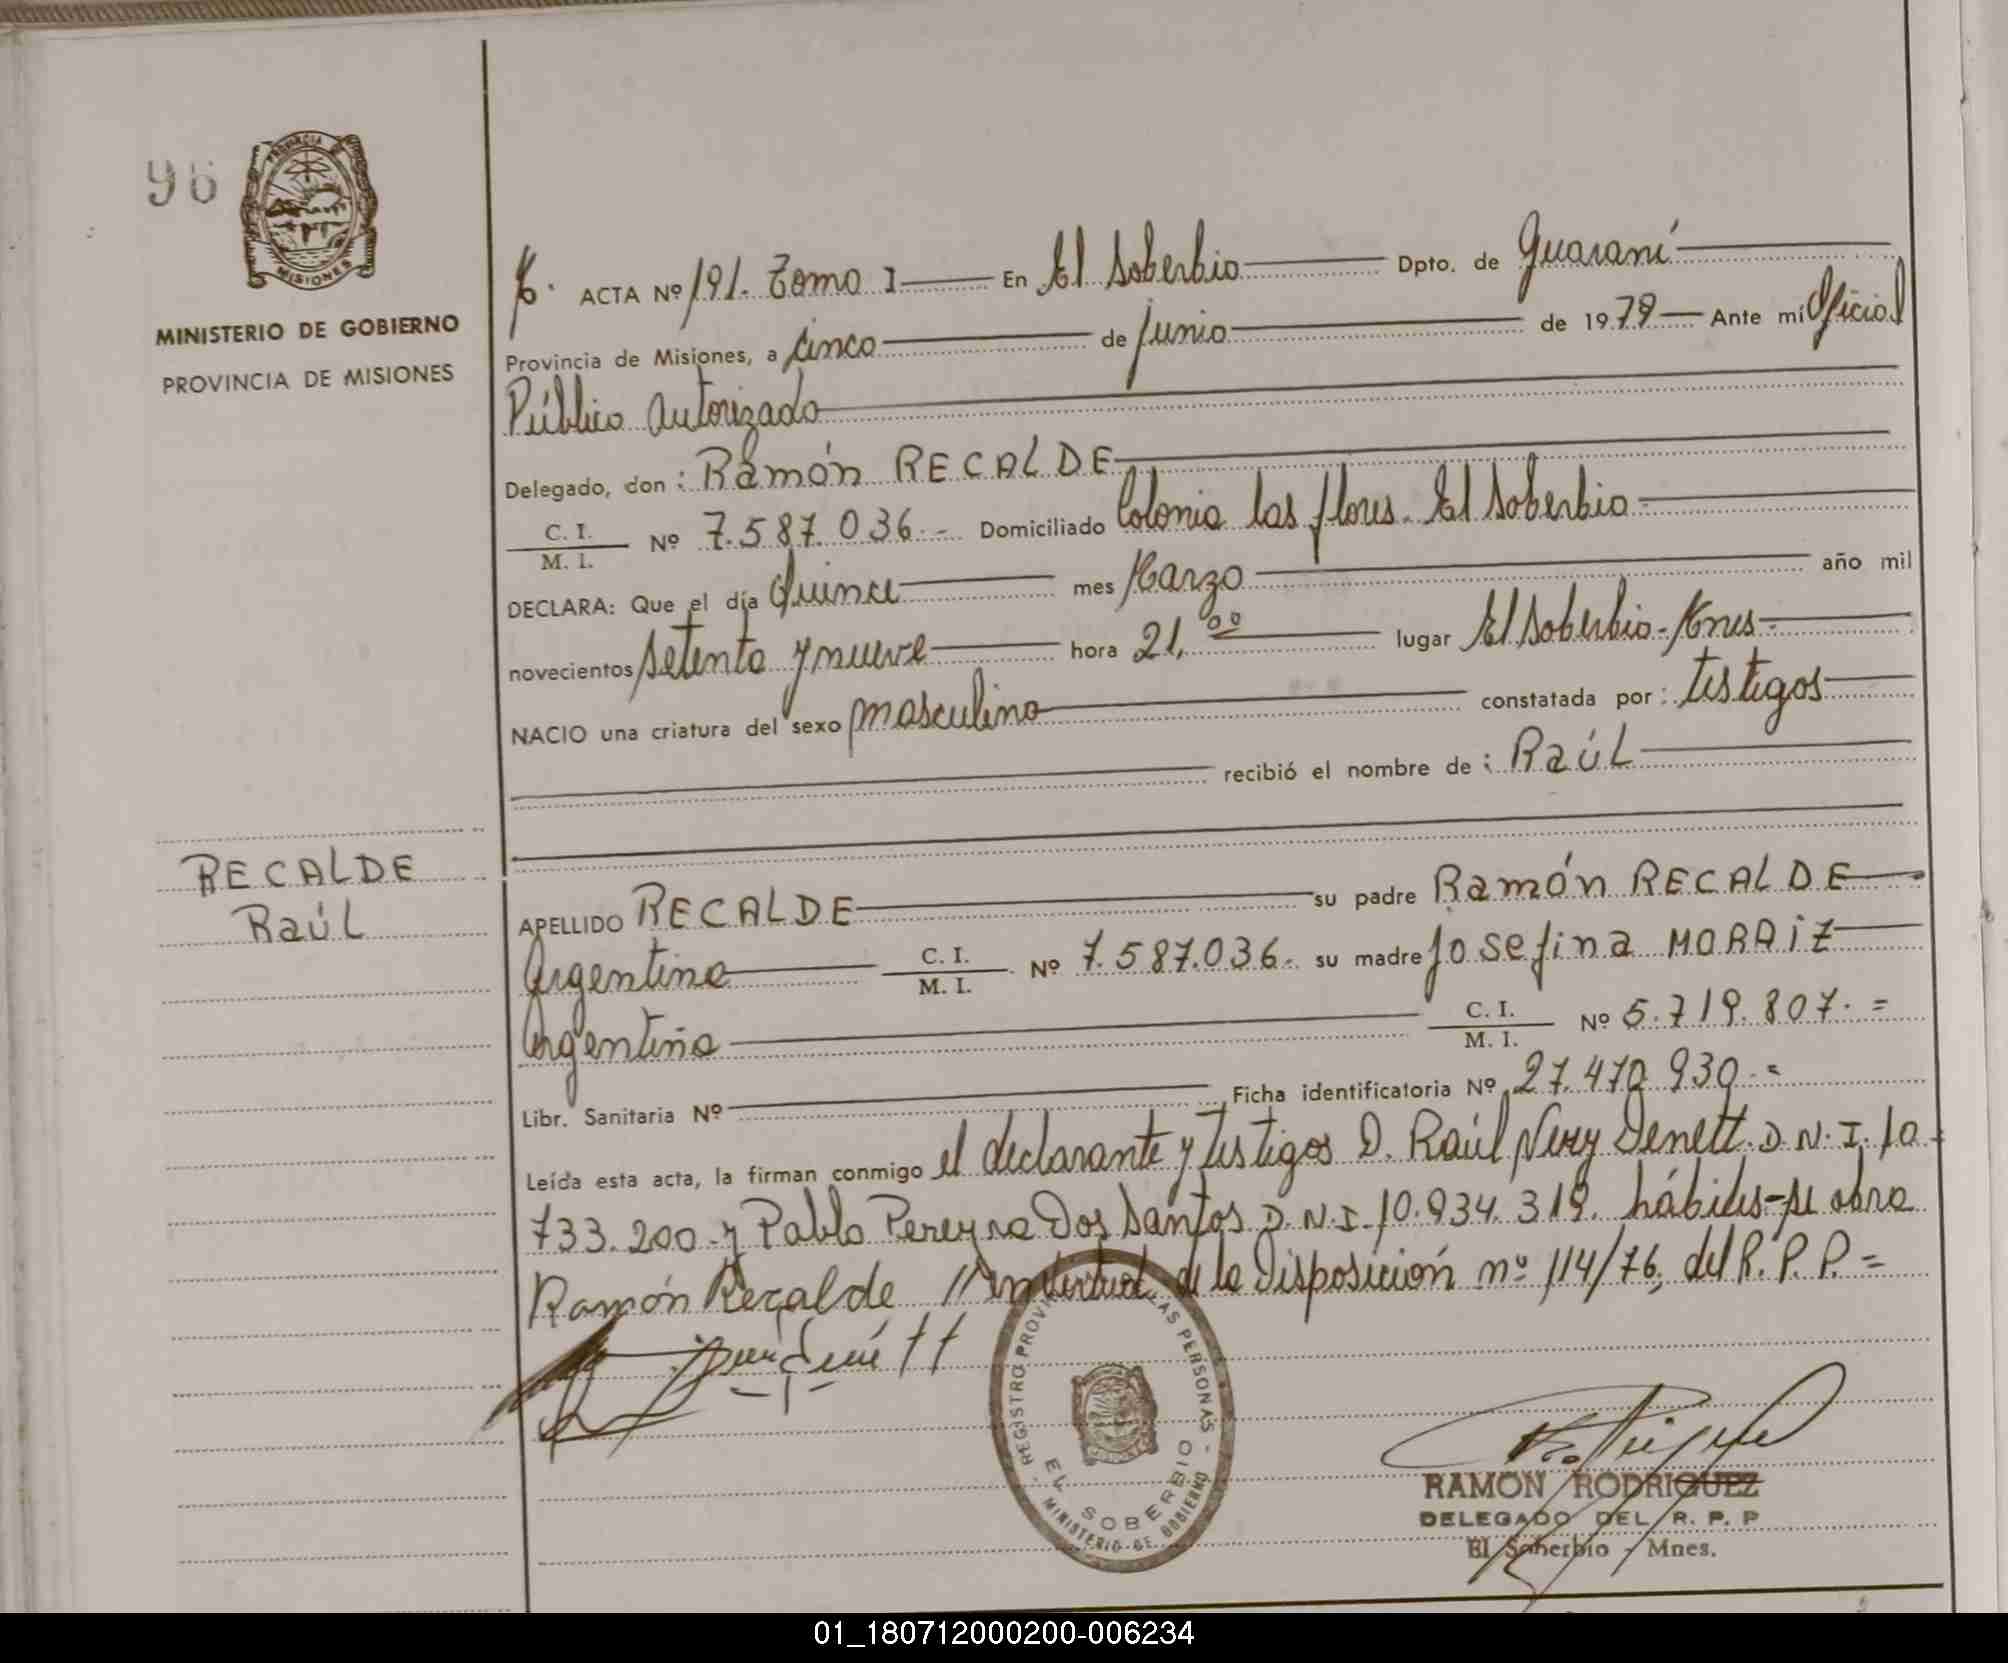 96
PROVINCIA DE
MISIONES
MINISTERIO DE GOBIERNO
PROVINCIA DE MISIONES
ACTA Nº 191. Tomo I En El Soberbio Dpto. de Guaraní
Provincia de Misiones, a cinco de junio de 1979 Ante mi Oficial
Público Autorizado
Delegado, don: Ramón RECALDE
C. I. / M. I. Nº 7.587.036.- Domiciliado Colonia las flores. El Soberbio
DECLARA: Que el día Quince mes Marzo año mil
novecientos setenta y nueve hora 21,00 lugar El Soberbio-Mnes-
NACIO una criatura del sexo masculino constatada por: testigos
recibió el nombre de: Raúl
RECALDE
Raúl
APELLIDO RECALDE su padre Ramón RECALDE
Argentino C. I. / M. I. Nº 7.587.036.- su madre Josefina MORAIZ
Argentina C. I. / M. I. Nº 5.719.807.=
Libr. Sanitaria Nº Ficha identificatoria Nº 27.470.930.=
Leída esta acta, la firman conmigo el declarante y testigos D. Raúl Nery Denett. D.N.I. 10.
733.200.y Pablo Pereyra Dos Santos D.N.I. 10.934.319. hábiles-se obra
Ramón Recalde // en virtud de la Disposición nº 114/76, del R.P.P.=
REGISTRO PROVINCIAL DE LAS PERSONAS
EL SOBERBIO
MINISTERIO DE GOBIERNO
RAMON RODRIGUEZ
DELEGADO DEL R. P. P
El Soberbio - Mnes.
01_180712000200-006234